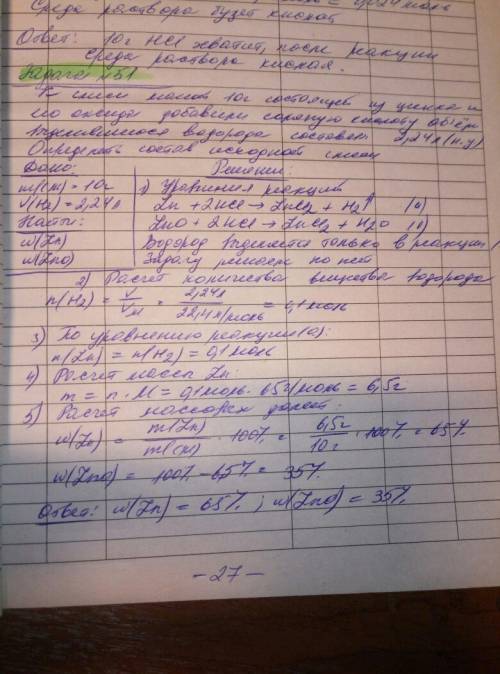 Среда раствора будет кислой
Ответ: 10г HCl хватит, после реакции
среда раствора кислая.
Задача №51
К смеси массой 10г состоящей из цинка и
его оксида добавили соляную кислоту объём
выделившегося водорода составил 2,24л (н.у)
Определить состав исходной смеси
Дано: Решение:
m(см) = 10г 1) Уравнения реакций
V(H2) = 2,24л Zn + 2HCl → ZnCl2 + H2↑ (а)
Найти: ZnO + 2HCl → ZnCl2 + H2O
w(Zn) Водород выделяется только в реакции
w(ZnO) Задачу решаем по ней
2) Расчет количества вещества водорода
n(H2) = V/Vм = 2,24л/22,4л/моль = 0,1 моль
3) По уравнению реакции (а):
n(Zn) = n(H2) = 0,1 моль
4) Расчет массы Zn:
m = n · M = 0,1 моль · 65г/моль = 6,5г
5) Расчет массовых долей:
w(Zn) = m(Zn)/m(см) · 100% = 6,5г/10г · 100% = 65%
w(ZnO) = 100% - 65% = 35%
Ответ: w(Zn) = 65%; w(ZnO) = 35%
- 27 -